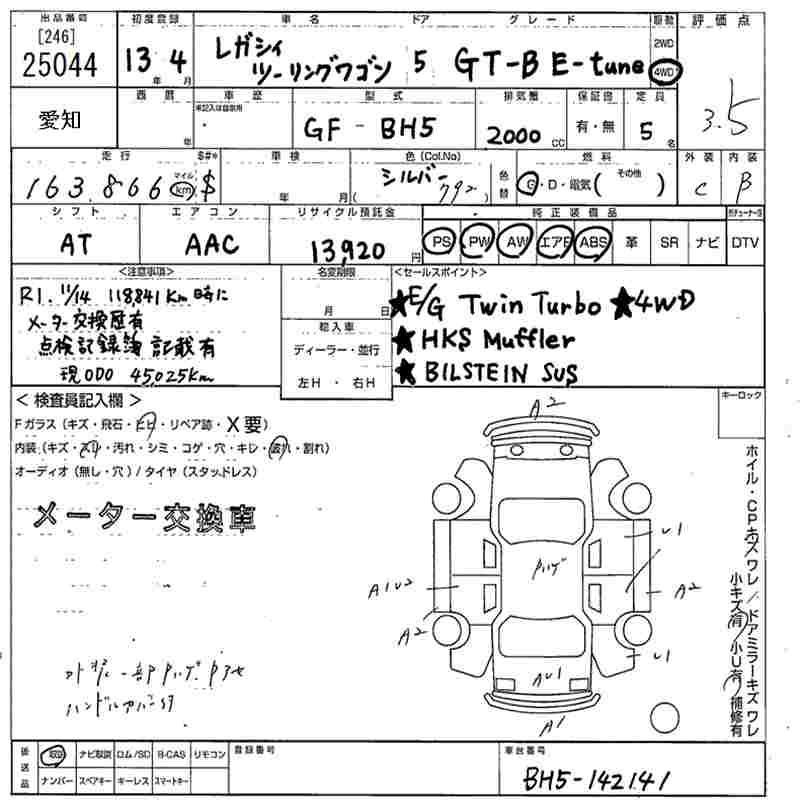 出品番号 初度登録 車名 ドア グレード 駆動 評価点
[246]
25044 13年 4月 レガシィ ツーリングワゴン 5 GT-B E-tune 2WD 4WD 3.5
愛知 西暦 年 車歴 未記入は自家用 型式 GF - BH5 排気量 2000 cc 保証書 有・無 定員 5名
走行 $#* 車検 色(Col.No) 色替 燃料 外装 内装
163.866 マイル km $ 年 月 シルバー 792 G・D・電気( その他 ) C B
シフト エアコン リサイクル預託金 純正装備品
AT AAC 13,920円 PS PW AW エアB ABS 革 SR ナビ DTV
<注意事項> 名変期限 <セールスポイント>
R1. 11/14 118,841Km時に
メーター交換歴有
点検記録簿 記載有
現ODO 45,025Km
月 日
輸入車
ディーラー・並行
左H ・ 右H
★E/G Twin Turbo ★4WD
★HKS Muffler
★BILSTEIN SUS
<検査員記入欄> キーロック
Fガラス(キズ・飛石・ヒビ・リペア跡・X要)
内装(キズ・スレ・汚れ・シミ・コゲ・穴・キレ・破れ・割れ)
オーディオ(無し・穴)/タイヤ(スタッドレス)
メーター交換車
A2
U1
A1U2
A2
A2
U1
AU1
A1
ホイル・CPキズワレ/ドアミラーキズワレ
小キズ有/小U有/補修有
後送品 取説 ナビ取説 ロム/SD B-CAS リモコン 登録番号 車台番号
ナンバー スペアキー キーレス スマートキー BH5-142141